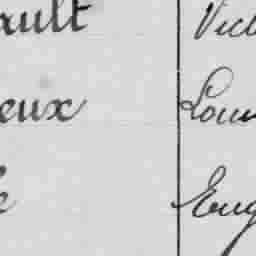 ault Vict
eux Loui
e Eug